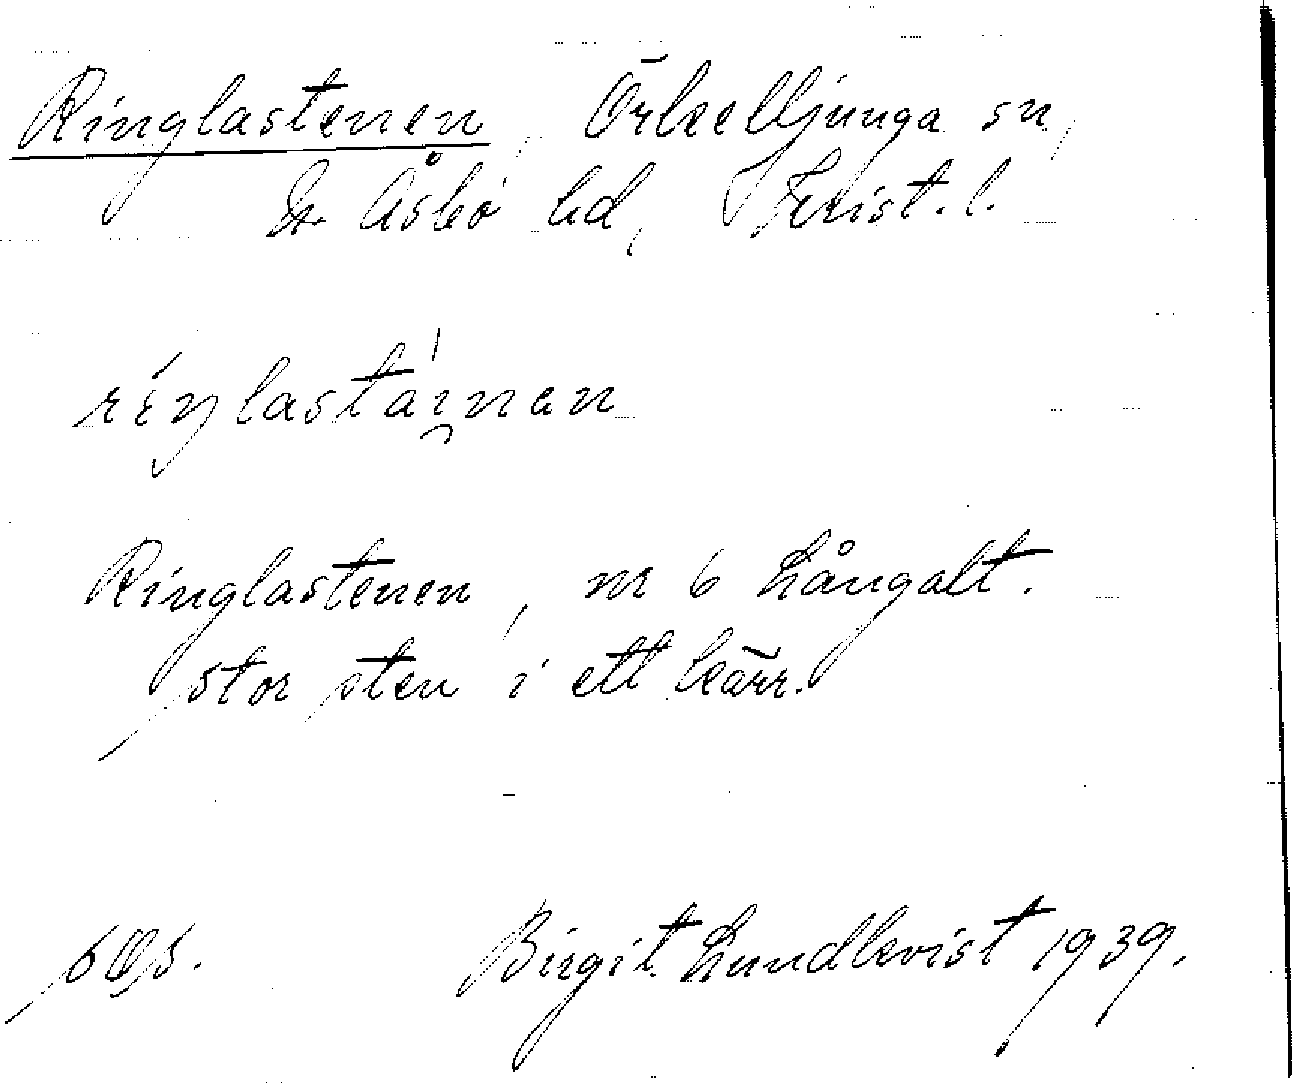 Ringlastenen, Örkelljunga sn,
N. Åsbo hd, Krist. l.
Ringlastenen, nr 6 Långalt.
stor sten i ett kärr.
Birgit Lundkvist 1939.